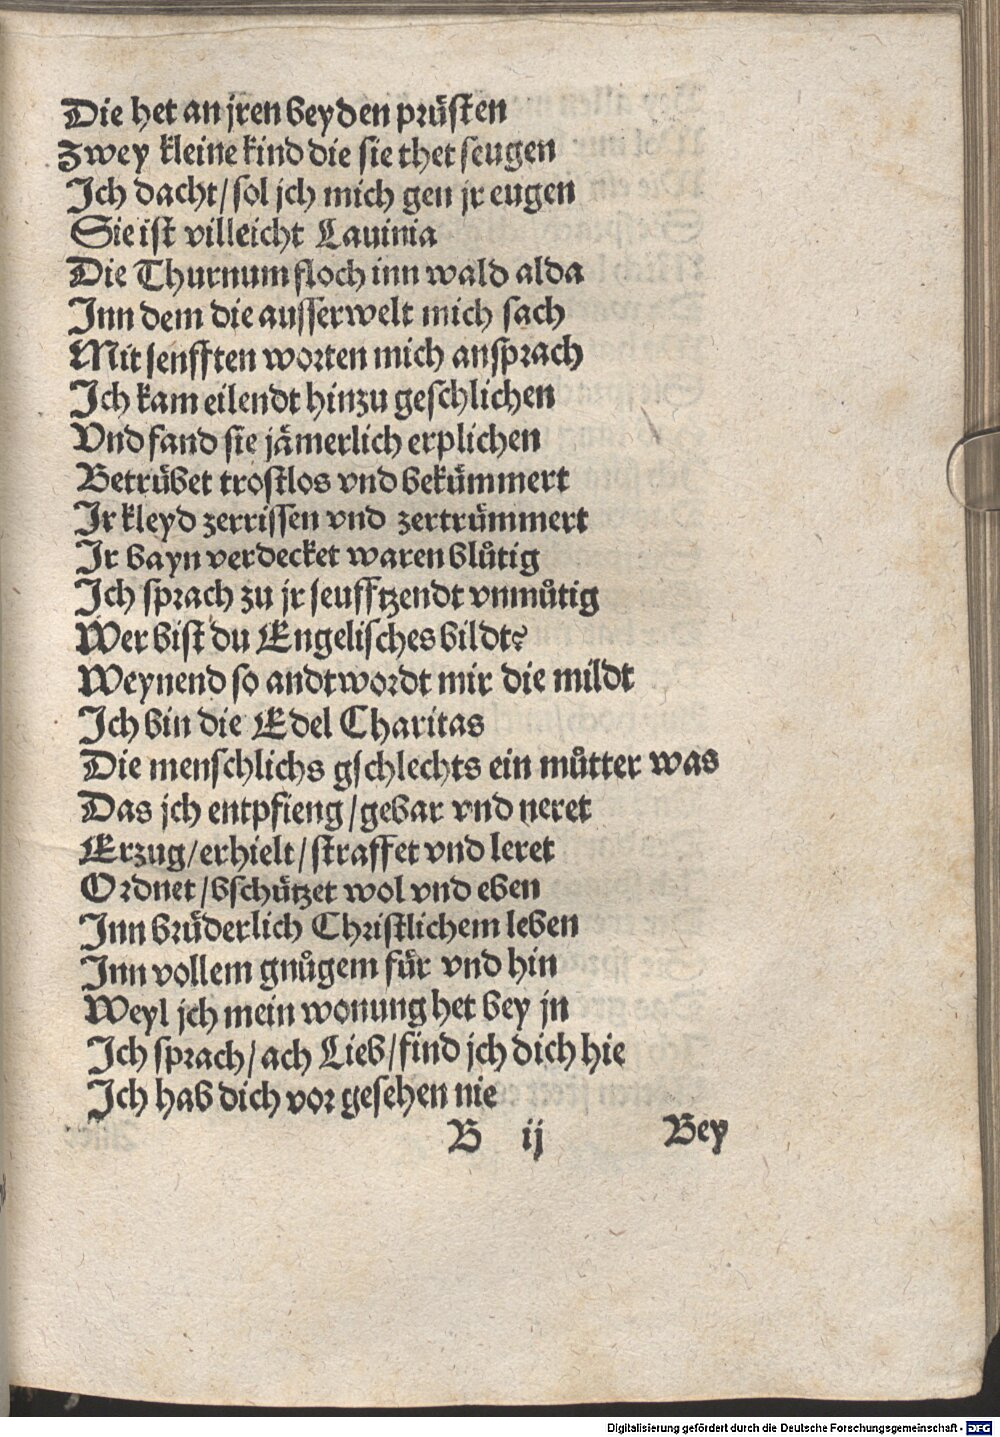 Die het an jren beyden prüsten
Zwey kleine kind die sie thet seugen
Ich dacht/ sol jch mich gen jr eugen
Sie ist villeicht Lauinia
Die Thurnum floch inn wald alda
Inn dem die ausserwelt mich sach
Mit senfften worten mich ansprach
Ich kam eilendt hinzu geschlichen
Vnd fand sie jämerlich erplichen
Betrübet trostlos vnd bekümmert
Ir kleyd zerrissen vnd zertrümmert
Ir bayn verdecket waren blůtig
Ich sprach zu jr seufftzendt vnmůtig
Wer bist du Engelisches bildt?
Weynend so andtwordt mir die mildt
Ich bin die Edel Charitas
Die menschlichs gschlechts ein můtter was
Das jch entpfieng/ gebar vnd neret
Erzug/ erhielt/ straffet vnd leret
Ordnet/ bschützet wol vnd eben
Inn brüderlich Christlichem leben
Inn vollem gnůgem für vnd hin
Weyl jch mein wonung het bey jn
Ich sprach/ ach Lieb/ find jch dich hie
Ich hab dich vor gesehen nie
B ij Bey
Digitalisierung gefördert durch die Deutsche Forschungsgemeinschaft - DFG